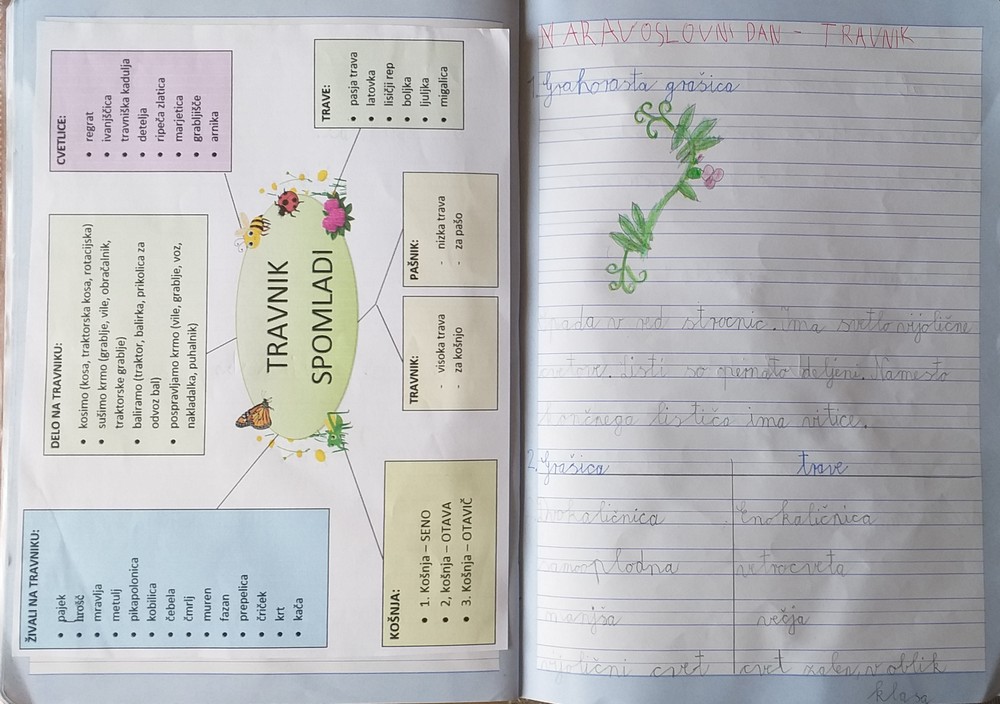 ŽIVALI NA TRAVNIKU:
• pajek
• hrošč
• mravlja
• metulj
• pikapolonica
• kobilica
• čebela
• čmrlj
• muren
• fazan
• prepelica
• čriček
• krt
• kača
DELO NA TRAVNIKU:
• kosimo (kosa, traktorska kosa, rotacijska)
• sušimo krmo (grablje, vile, obračalnik,
traktorske grablje)
• baliramo (traktor, balirka, prikolica za
odvoz bal)
• pospravljamo krmo (vile, grablje, voz,
nakladalka, puhalnik)
CVETLICE:
• regrat
• ivanjščica
• travniška kadulja
• detelja
• ripeča zlatica
• marjetica
• grabljišče
• arnika
TRAVNIK
SPOMLADI
TRAVE:
• pasja trava
• latovka
• lisičji rep
• boljka
• ljuljka
• migalica
KOŠNJA:
• 1. Košnja – SENO
• 2, košnja – OTAVA
• 3. Košnja – OTAVIČ
TRAVNIK:
- visoka trava
- za košnjo
PAŠNIK:
- nizka trava
- za pašo
NARAVOSLOVNI DAN - TRAVNIK
1. Grahorasta grašica
spada v red stročnic. ima svetlo vijolične
cvetove. listi so pernato deljeni. Namesto
končnega lističa ima vitice.
2. Grašica trave
Enokaličnica
samooplodna vetrocveta
manjša večja
vijolični cvet cvet zelen, v oblik
klasa